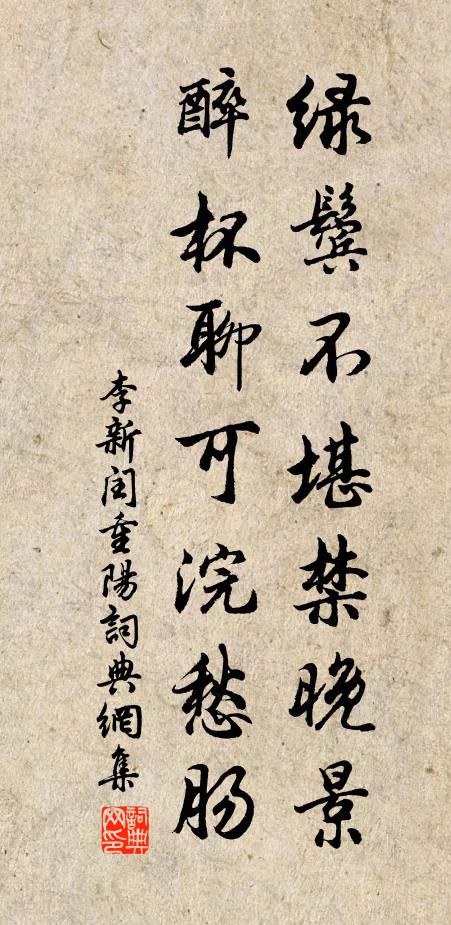 绿鬓不堪禁晚景
醉杯聊可浣愁肠
李新闰重陽詞典網集
詞典网印